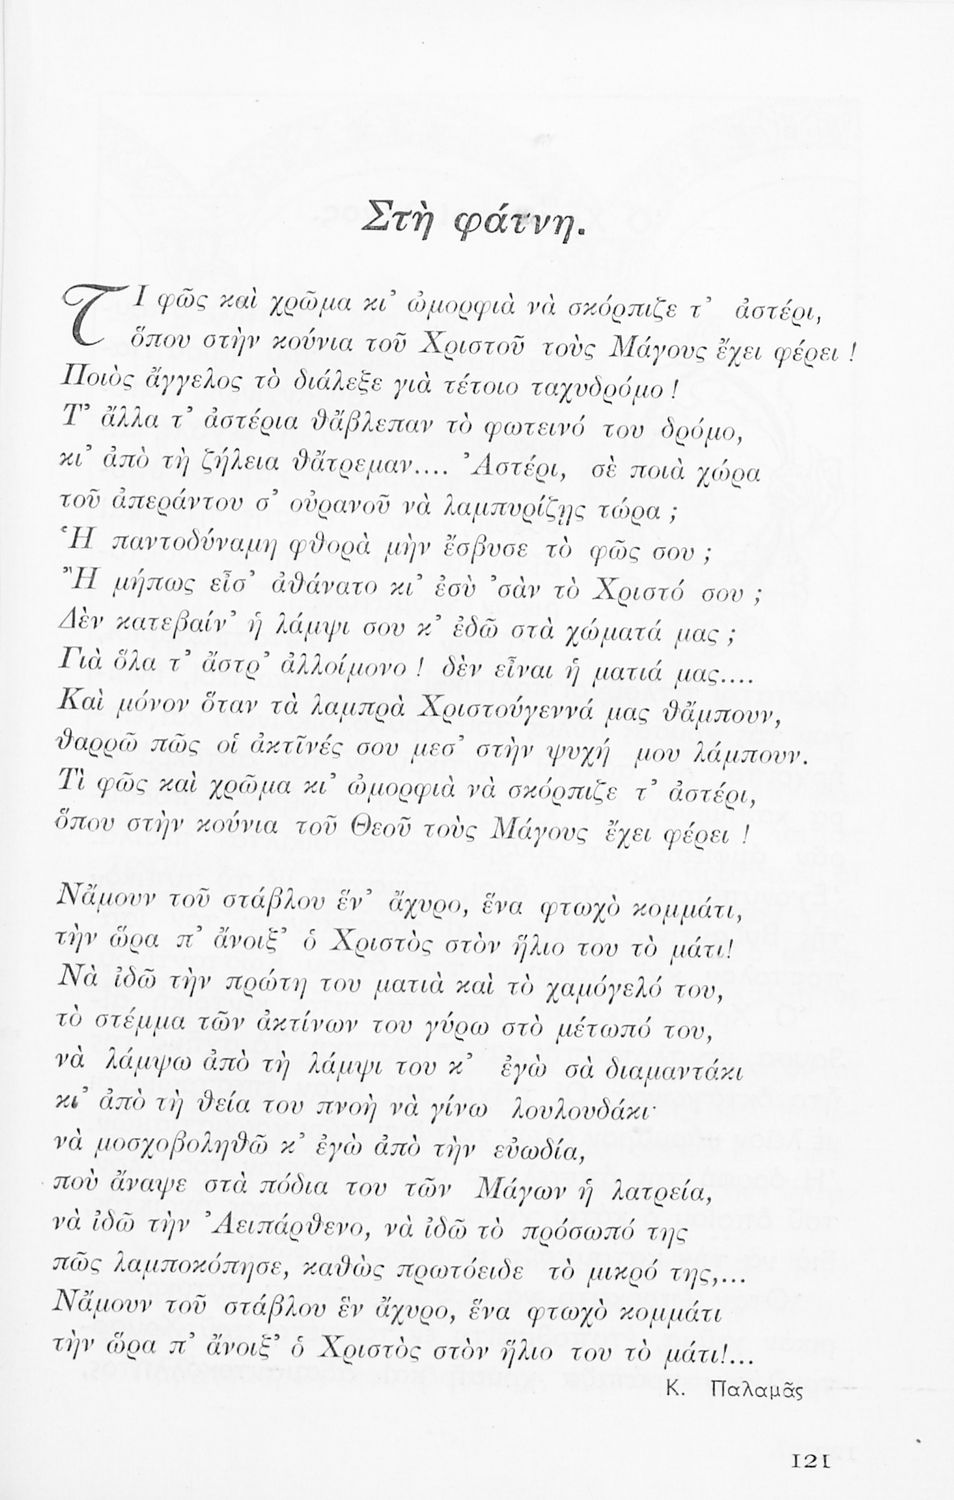 Στὴ φάτνη.
ΤΙ φῶς καὶ χρῶμα κι’ ὠμορφιὰ νὰ σκόρπιζε τ’ ἀστέρι,
ὅπου στὴν κούνια τοῦ Χριστοῦ τοὺς Μάγους ἔχει φέρει !
Ποιὸς ἄγγελος τὸ διάλεξε γιὰ τέτοιο ταχυδρόμο !
Τ’ ἄλλα τ’ ἀστέρια θἄβλεπαν τὸ φωτεινό του δρόμο,
κι’ ἀπὸ τὴ ζήλεια θἄτρεμαν.... Ἀστέρι, σὲ ποιὰ χώρα
τοῦ ἀπεράντου σ’ οὐρανοῦ νὰ λαμπυρίζῃς τώρα ;
Ἡ παντοδύναμη φθορὰ μὴν ἔσβυσε τὸ φῶς σου ;
Ἢ μήπως εἶσ’ ἀθάνατο κι’ ἐσὺ ’σὰν τὸ Χριστό σου ;
Δὲν κατεβαίν’ ἡ λάμψι σου κ’ ἐδῶ στὰ χώματά μας ;
Γιὰ ὅλα τ’ ἄστρ’ ἀλλοίμονο ! δὲν εἶναι ἡ ματιά μας....
Καὶ μόνον ὅταν τὰ λαμπρὰ Χριστούγεννά μας θἄμπουν,
θαρρῶ πῶς οἱ ἀκτῖνές σου μεσ’ στὴν ψυχή μου λάμπουν.
Τὶ φῶς καὶ χρῶμα κι’ ὠμορφιὰ νὰ σκόρπιζε τ’ ἀστέρι,
ὅπου στὴν κούνια τοῦ Θεοῦ τοὺς Μάγους ἔχει φέρει !
Νἄμουν τοῦ στάβλου ἕν’ ἄχυρο, ἕνα φτωχὸ κομμάτι,
τὴν ὥρα π’ ἄνοιξ’ ὁ Χριστὸς στὸν ἥλιο του τὸ μάτι!
Νὰ ἰδῶ τὴν πρώτη του ματιὰ καὶ τὸ χαμόγελό του,
τὸ στέμμα τῶν ἀκτίνων του γύρω στὸ μέτωπό του,
νὰ λάμψω ἀπὸ τὴ λάμψι του κ’ ἐγὼ σὰ διαμαντάκι
κι’ ἀπὸ τὴ θεία του πνοὴ νὰ γίνω λουλουδάκι·
νὰ μοσχοβοληθῶ κ’ ἐγὼ ἀπὸ τὴν εὐωδία,
ποὺ ἄναψε στὰ πόδια του τῶν Μάγων ἡ λατρεία,
νὰ ἰδῶ τὴν Ἀειπάρθενο, νὰ ἰδῶ τὸ πρόσωπό της
πῶς λαμποκόπησε, καθὼς πρωτόειδε τὸ μικρό της,...
Νἄμουν τοῦ στάβλου ἕν ἄχυρο, ἕνα φτωχὸ κομμάτι
τὴν ὥρα π’ ἄνοιξ’ ὁ Χριστὸς στὸν ἥλιο του τὸ μάτι!...
Κ. Παλαμᾶς
121